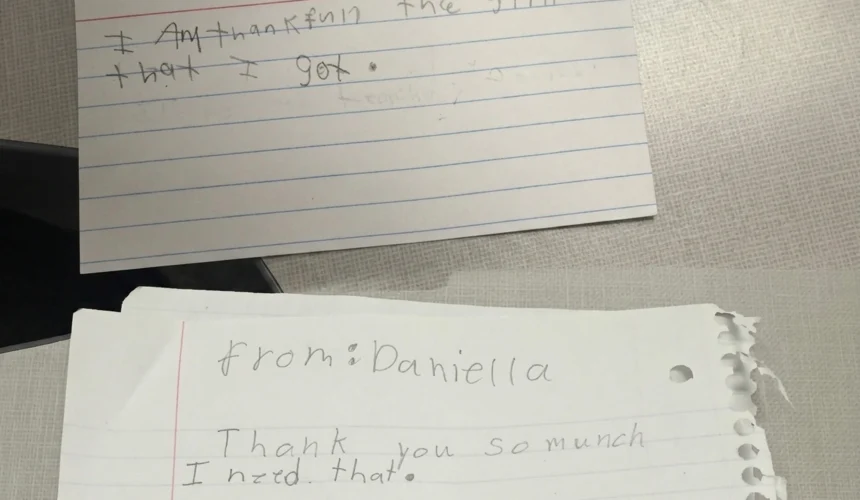 I Am thankfull the
that I got.
from: Daniella
Thank you so munch
I need that.